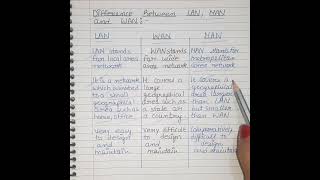 Difference Between LAN, MAN
and WAN:-
LAN WAN MAN
LAN stands WAN stands MAN stands for
for local area for wide metropolitan
network area network area network
It is a network It covers a It covers a
which connected large geographical
to a small geographical area larger
geographical area such as than LAN
area such as a state or but smaller
home, office a country. than WAN
Very easy Very difficult Comparatively
to design to design difficult to
and and design
maintain maintain and maintain